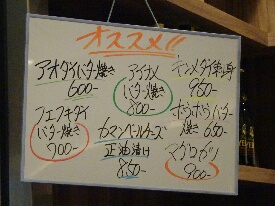 オススメ!!
アオダイバター焼き
600-
フエフキダイ
バター焼き
700-
アイナメ
バター焼き
800-
カマンベールチーズ
正油漬け
850-
キンメダイ
950-
ホウボウバター
焼き 650-
マグロガリ
900-